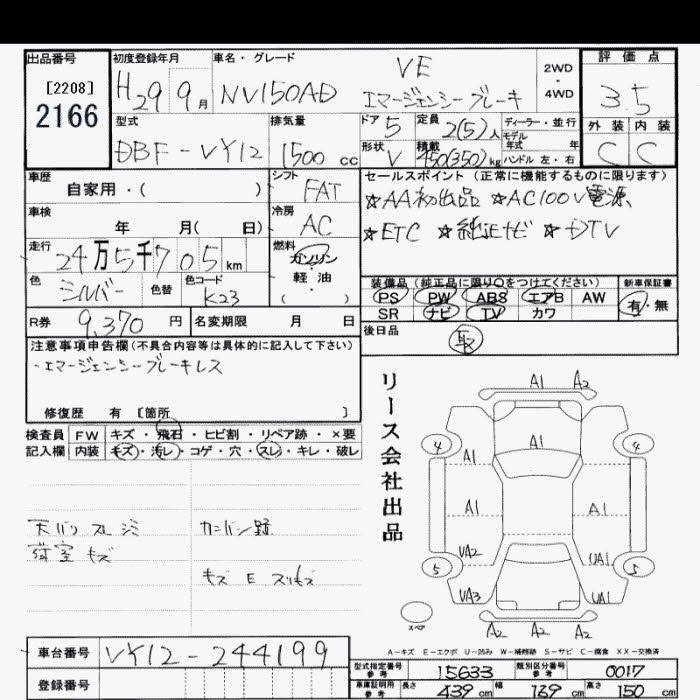 出品番号
[2208]
2166
初度登録年月
H29 9月
車名・グレード
NV150AD
VE
エマージェンシーブレーキ
2WD
・
4WD
評価点
3.5
外装 内装
C C
型式
DBF-VY12
排気量
1500 cc
ドア 5
定員 2(5)人
ディーラー・並行
モデル
年式 年
形状 V
積載 450(350)kg
ハンドル 左・右
車歴
自家用・( )
シフト
FAT
車検
年 月( 日)
冷房
AC
走行
24万5千705km
燃料
ガソリン
軽・油
( )
色
シルバー
色替
色コード
K23
R券 9,370 円
名変期限 月 日
セールスポイント(正常に機能するものに限ります)
☆AA初出品 ☆AC100V電源
☆ETC ☆純正ナビ ☆TV
装備品(純正品に限り○をつけてください)
新車保証書
PS PW ABS エアB AW
SR ナビ TV カワ
有・無
後日品
取
注意事項申告欄(不具合内容等は具体的に記入して下さい)
・エマージェンシーブレーキレス
修復歴 有 [箇所 ]
検査員 FW キズ・飛石・ヒビ割・リペア跡・×要
記入欄 内装 キズ・汚レ・コゲ・穴・スレ・キレ・破レ
天バリ スレ シミ
荷室 キズ
カンバン跡
キズ E スリキズ
リース会社出品
A1 A2
4 A1 4
A1
A1 A1
UA2 UA1
5 5
UA3 UA1
スペア
A2 A2 A2
A-キズ E-エクボ U-凹み W-補修跡 S-サビ C-腐食 XX-交換済
車台番号 VY12-244199
登録番号
型式指定番号
参考
15633
類別区分番号
参考
0017
車庫証明用
参考
長さ 439cm 幅 169cm 高さ 150cm